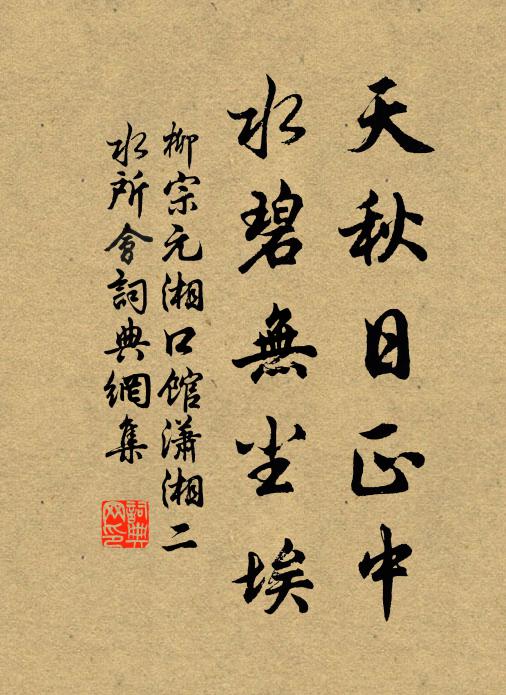 天秋日正中
水碧無尘埃
柳宗元湘口館瀟湘二
水所會詞典網集
詞典
网印